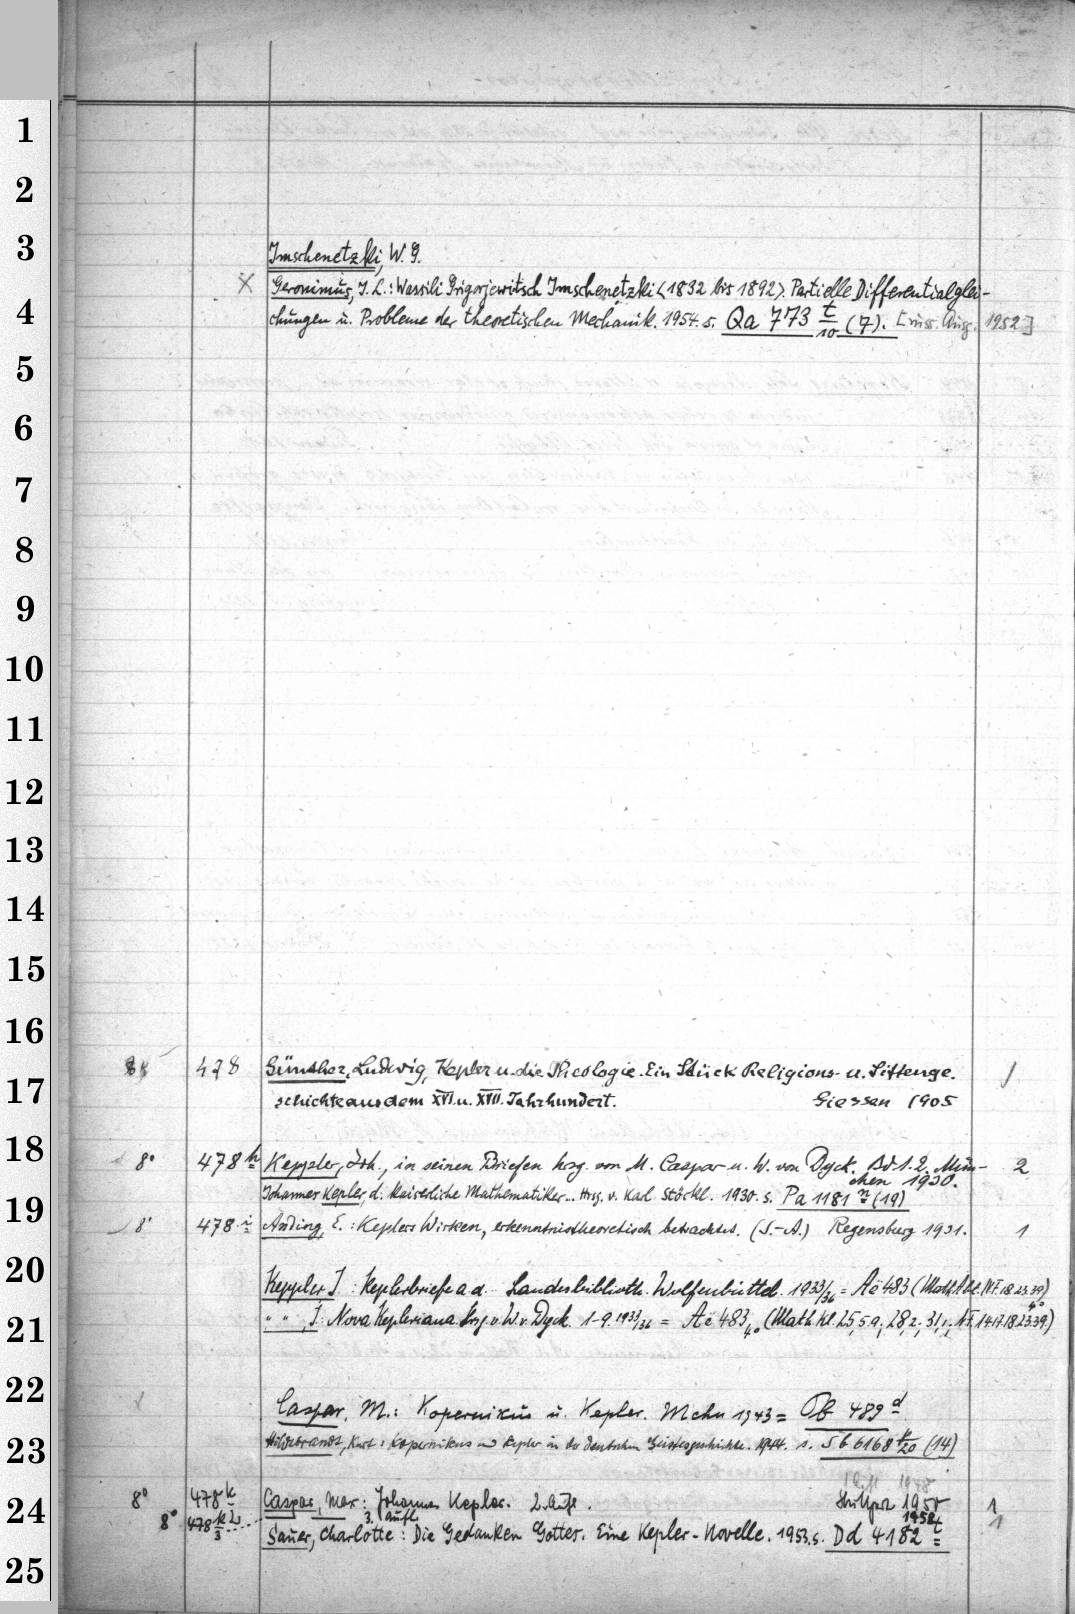 1
2
3
Imschenetzki, W. G.
× Geronimus, J. L.: Wassili Grigorjewitsch Imschenetzki <1832 bis 1892>. Partielle Differentialglei-
4
chungen u. Probleme der theoretischen Mechanik. 1954. s. Qa 773 t/10 (7). [russ. Ausg. 1952]
5
6
7
8
9
10
11
12
13
14
15
16
478 Günther, Ludwig, Kepler u. die Theologie. Ein Stück Religions- u. Sittenge- 1
17
schichte aus dem XVI. u. XVII. Jahrhundert. Giessen 1905
18
8° 478 h Keppler, Joh., in seinen Briefen hrsg. von M. Caspar u. W. von Dyck. Bd 1.2. Mün- 2
chen 1930.
Johannes Kepler, d. kaiserliche Mathematiker... Hrsg. v. Karl Stöckl. 1930. s. Pa 1181 n (19)
19
8° 478 i Anding, E.: Keplers Wirken, erkenntnistheoretisch betrachtet. (S.-A.) Regensburg 1931. 1
20
Keppler, J. Keplerbriefe a. d. Landesbiblioth. Wolfenbüttel. 1933/36 = Ae 483 (Math. Abt. N.F. 18.23.39)
4°
21
" " , J. Nova Kepleriana. Hrsg. v. W. v. Dyck. 1-9. 1933/36 = Ae 483, 4° (Math. Kl. 25,5.9; 28,2; 31,1; N.F. 14.17.18.23.39)
22
Caspar, M.: Kopernikus u. Kepler. Mchn 1943 = Ob 489 d
23
Hildebrandt, Kurt: Kopernikus und Kepler in der deutschen Geistesgeschichte. 1944. s. Sb 6168 k/20 (14)
8° 478 k Caspar, Max: Johannes Kepler. 2. Aufl. Stuttgart 1950 1
24
8° 478 k2/3 3. Aufl. 1958 1
Sauer, Charlotte: Die Gedanken Gottes. Eine Kepler-Novelle. 1953. s. Dd 4182 t
25